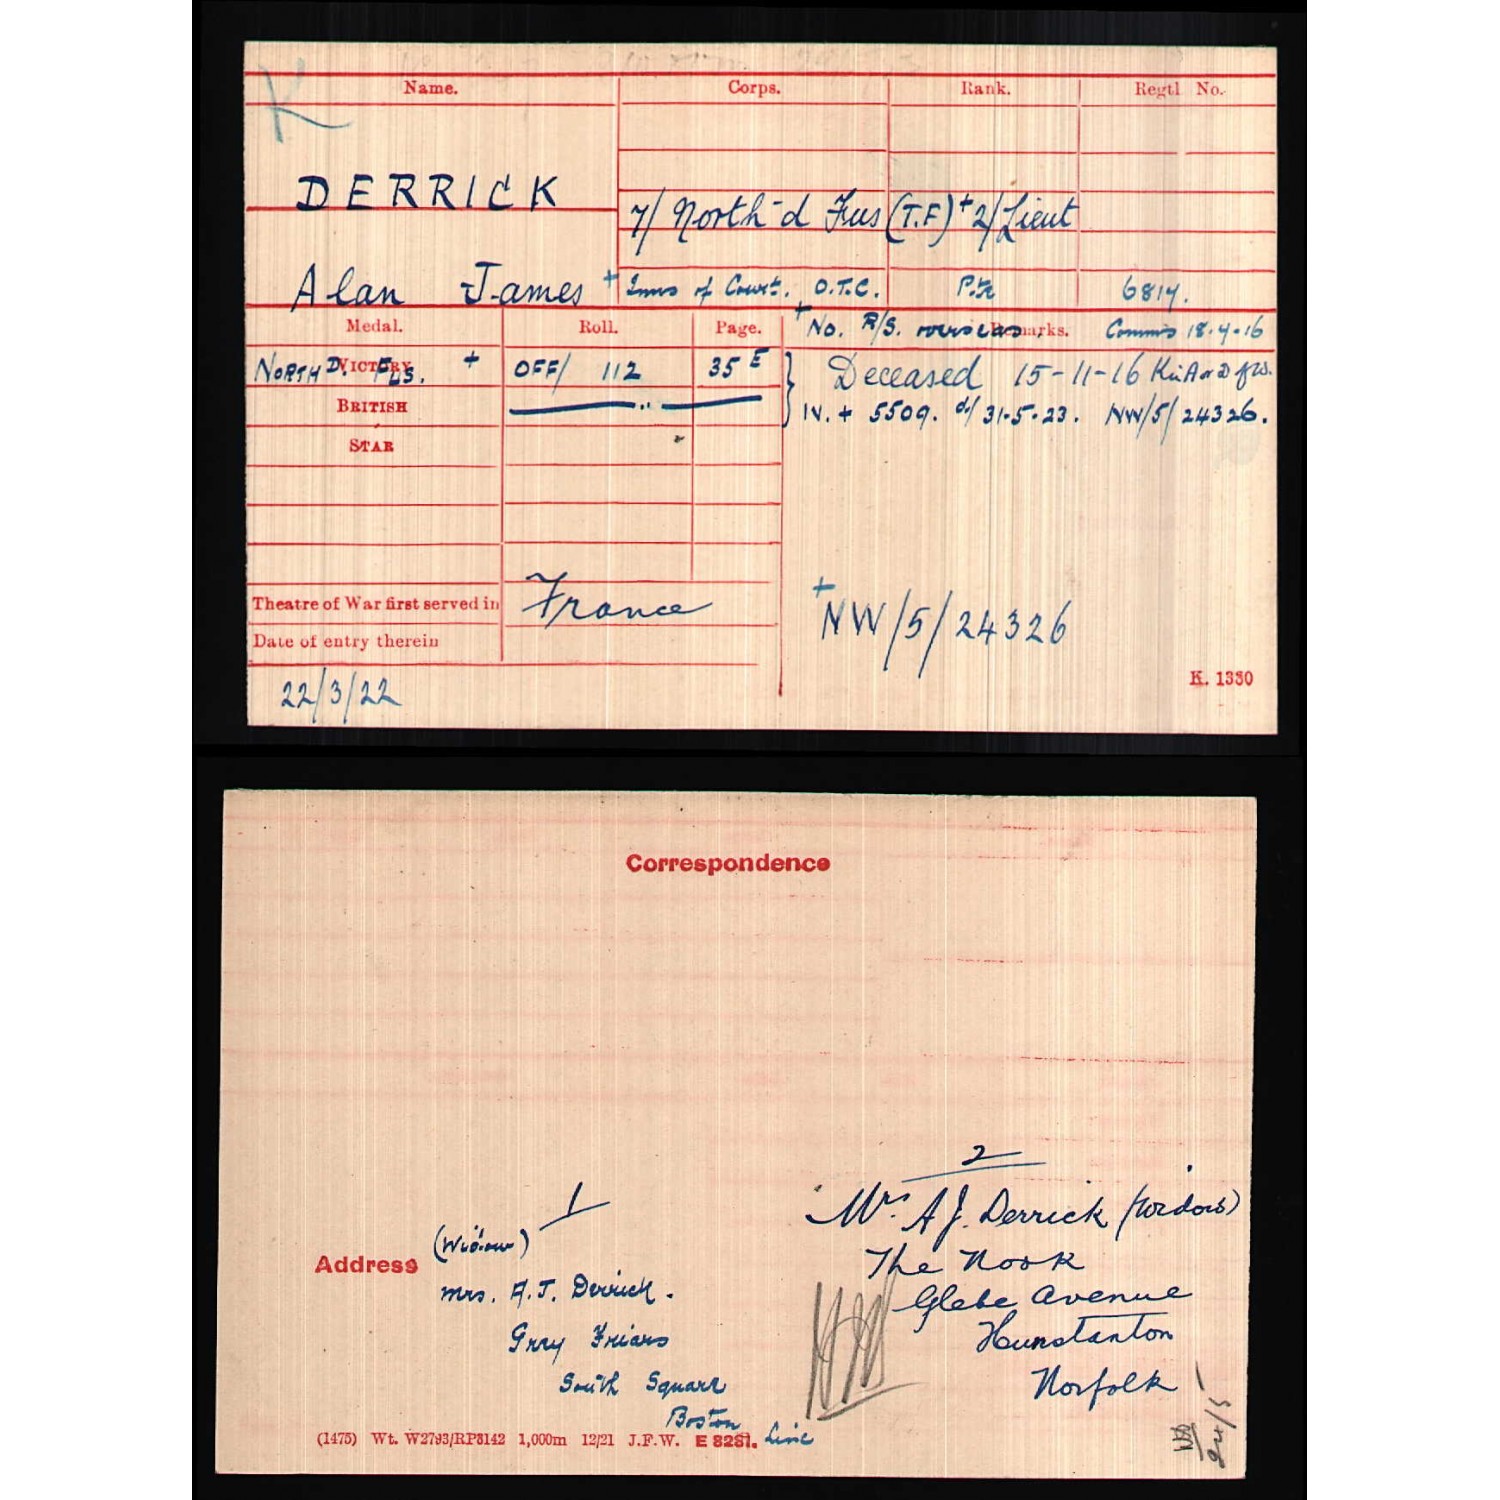 K
Name. Corps. Rank. Regtl No.
DERRICK
7/ North-d Fus (T.F) + 2/Lieut
Alan James + Inns of Court. O.T.C. Pte 6814.
Medal. Roll. Page. + No. R/S. overseas. Remarks. Comms 18.4.16
VICTORY
NORTHD. FUS. + OFF/ 112 35 E Deceased 15-11-16 K in A or D of W.
BRITISH —— " —— IV. + 5509. d/ 31.5.23. NW/5/24326.
STAR
Theatre of War first served in France
+ NW/5/24326
Date of entry therein
K. 1380
22/3/22
Correspondence
1
Address (Widow)
Mrs. A.J. Derrick.
Gray Friars
South Square
Boston
Linc
2
Mrs. A J. Derrick (Widow)
The Nook
Glebe Avenue
Hunstanton
Norfolk
(1475) Wt. W2793/RP3142 1,000m 12/21 J.F.W. E 8281.